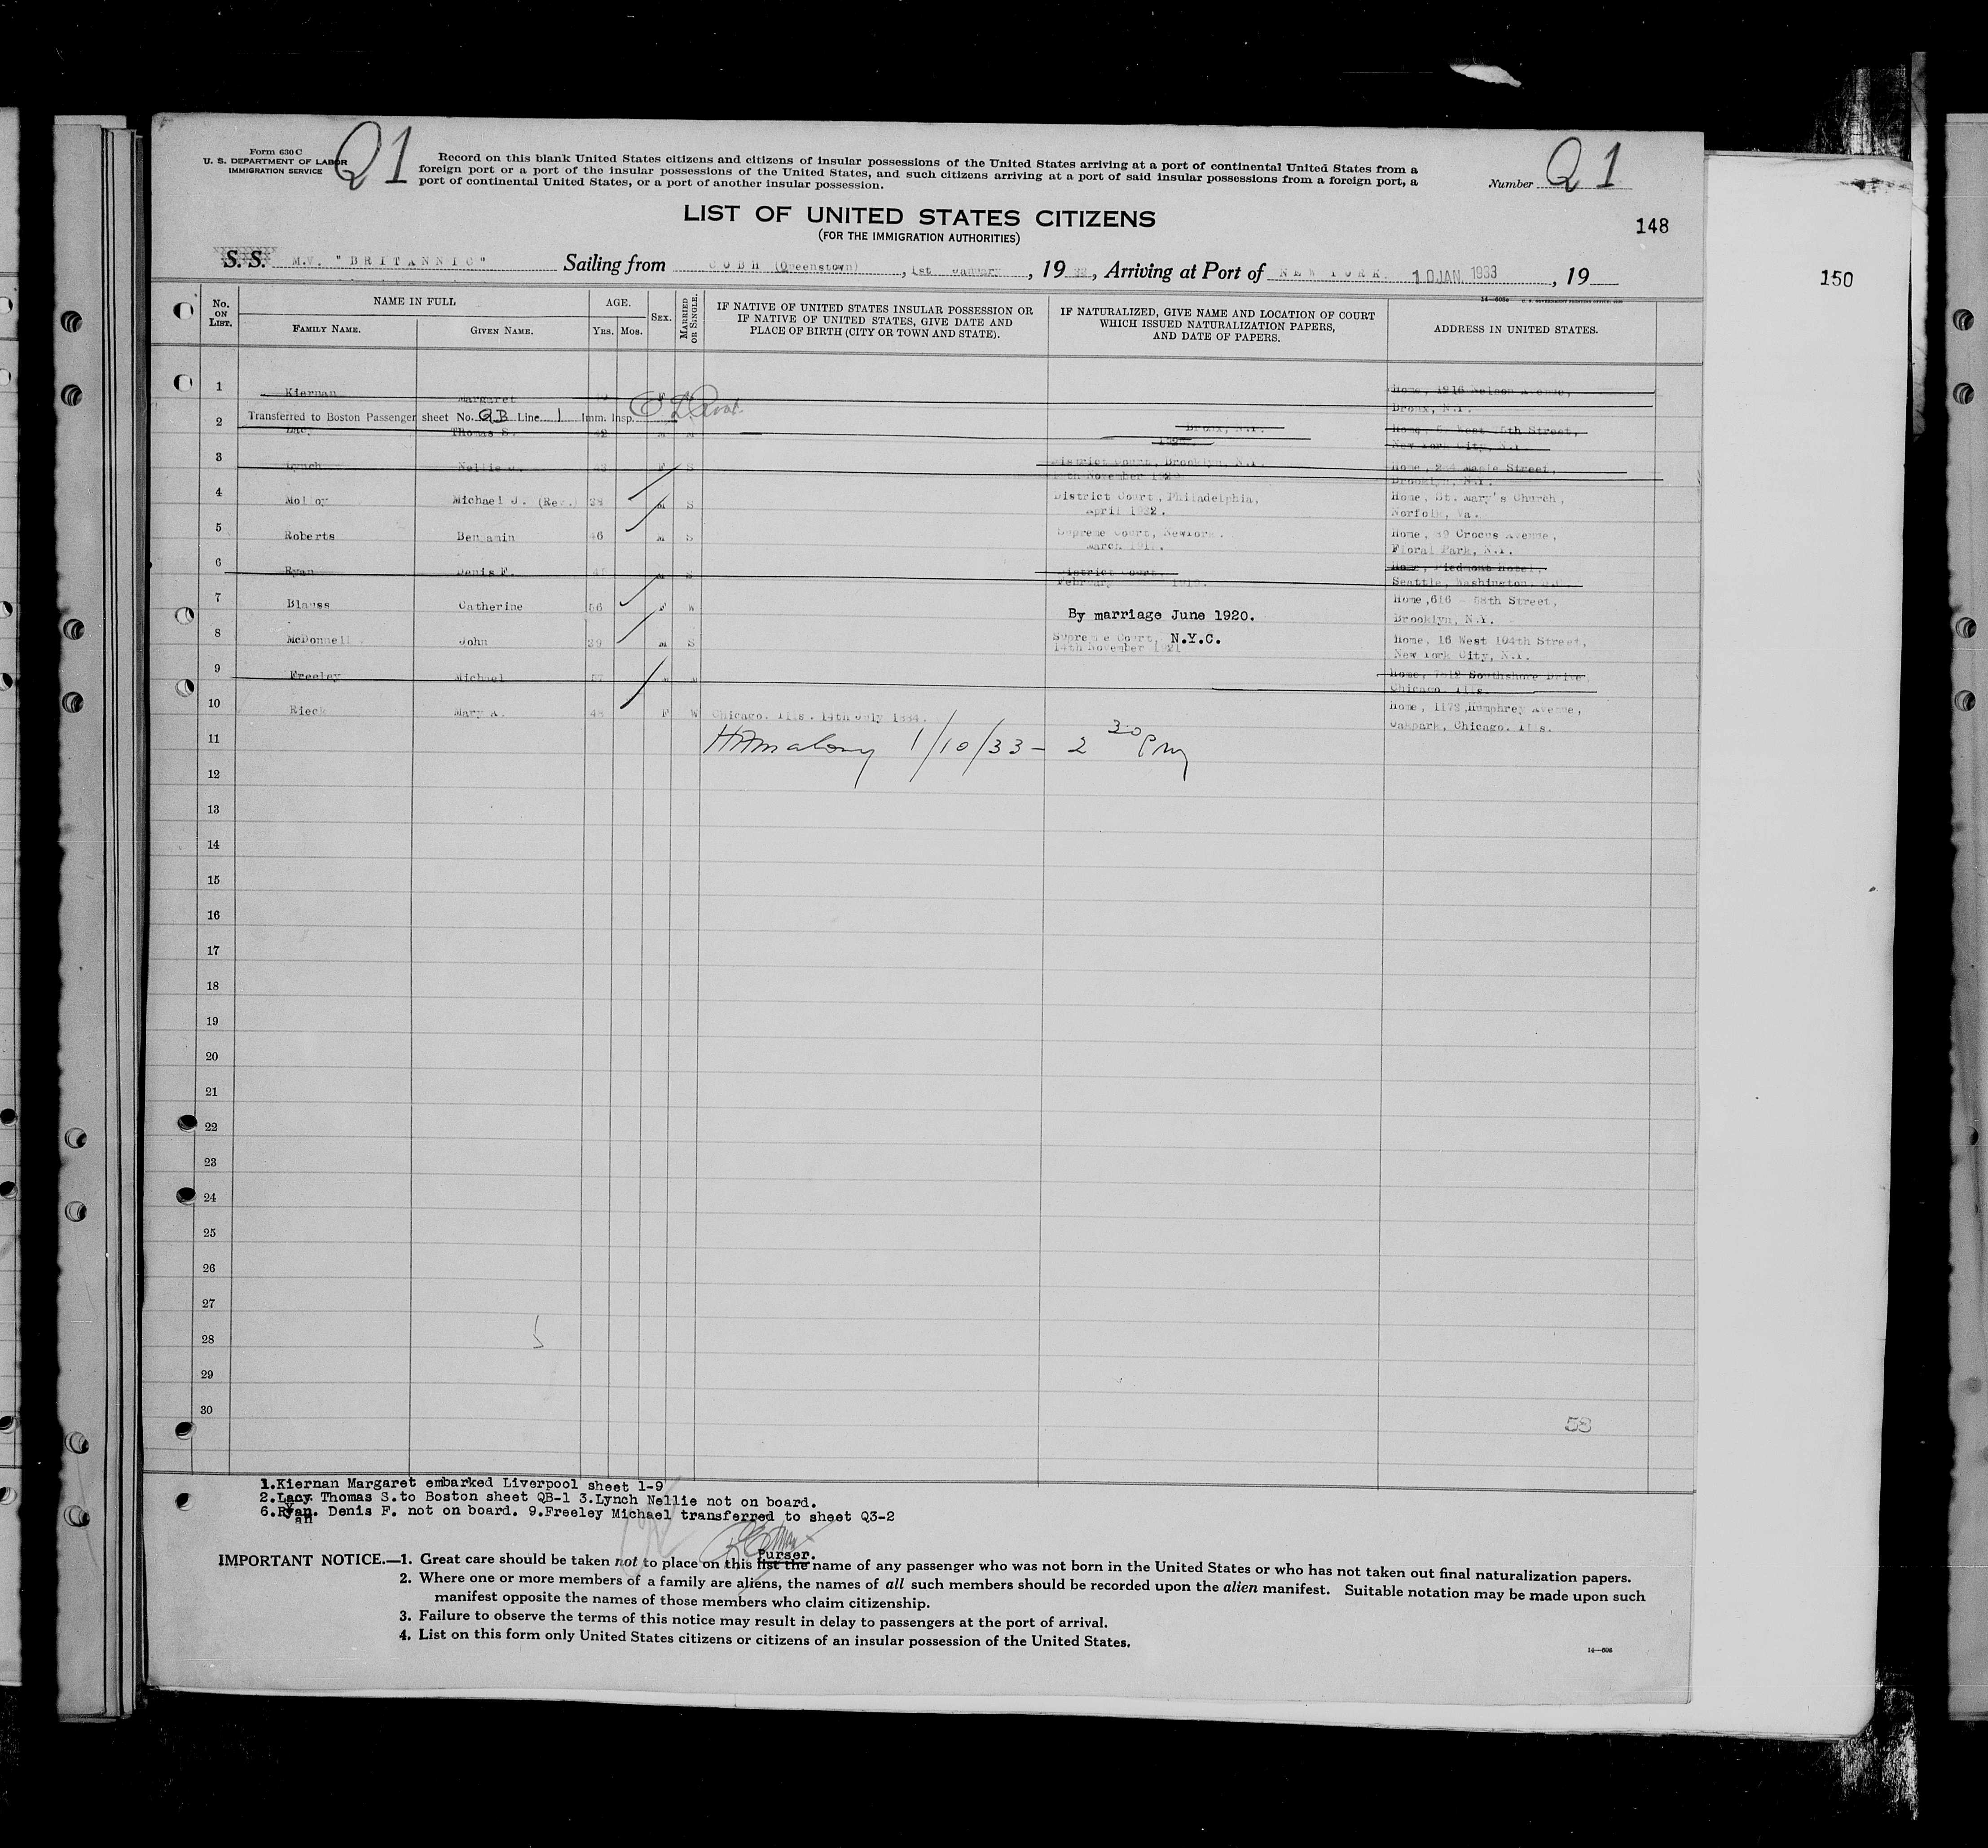 Form 630 C
U. S. DEPARTMENT OF LABOR
IMMIGRATION SERVICE
Q1
Record on this blank United States citizens and citizens of insular possessions of the United States arriving at a port of continental United States from a
foreign port or a port of the insular possessions of the United States, and such citizens arriving at a port of said insular possessions from a foreign port, a
port of continental United States, or a port of another insular possession.
Number Q1
LIST OF UNITED STATES CITIZENS
(FOR THE IMMIGRATION AUTHORITIES)
148
S. S. M.V. "BRITANNIC" Sailing from COBH (Queenstown), 1st January, 19 Arriving at Port of NEW YORK. 10 JAN. 1933, 19
150
No. ON LIST. NAME IN FULL AGE. SEX. MARRIED OR SINGLE. IF NATIVE OF UNITED STATES INSULAR POSSESSION OR IF NATIVE OF UNITED STATES, GIVE DATE AND PLACE OF BIRTH (CITY OR TOWN AND STATE). IF NATURALIZED, GIVE NAME AND LOCATION OF COURT WHICH ISSUED NATURALIZATION PAPERS, AND DATE OF PAPERS. ADDRESS IN UNITED STATES.
FAMILY NAME. GIVEN NAME. YRS. MOS.
1 Kiernan Margaret F Home, 1216 Nelson Avenue,
Bronx, N.Y.
Transferred to Boston Passenger sheet No. QB Line 1 Imm. Insp.
2 Lacy Thomas S. 42 M M Bronx, N.Y. Home, West Street,
New York City, N.Y.
3 Lynch Nellie F S District Court, Brooklyn, N.Y. Home, Maple Street,
November Brooklyn, N.Y.
4 Molloy Michael J. (Rev.) M S District Court, Philadelphia, Home, St. Mary's Church,
April 1922. Norfolk, Va.
5 Roberts Benjamin 46 M S Supreme Court, NewYork. Home, 39 Crocus Avenue,
March Floral Park, N.Y.
6 Ryan Denis F. M S District Court. Home, Piedmont Hotel.
February Seattle, Washington.
7 Blauss Catherine 56 F W By marriage June 1920. Home, 616 - 58th Street,
Brooklyn, N.Y.
8 McDonnell John 39 M S Supreme Court, N.Y.C. Home, 16 West 104th Street,
14th November 1921 New York City, N.Y.
9 Freeley Michael 57 Home, Southshore Drive.
Chicago. Ills.
10 Rieck Mary A. 48 F W Chicago. Ills. 14th July 1884. Home, 1179, Humphrey Avenue,
Oakpark, Chicago. Ills.
11 1/10/33 - 2 30 pm
12
13
14
15
16
17
18
19
20
21
22
23
24
25
26
27
28
29
30
58
1.Kiernan Margaret embarked Liverpool sheet 1-9
2.Lacy Thomas S.to Boston sheet QB-1 3.Lynch Nellie not on board.
6.Ryan. Denis F. not on board. 9.Freeley Michael transferred to sheet Q3-2
an
Purser.
IMPORTANT NOTICE.—1. Great care should be taken not to place on this list the name of any passenger who was not born in the United States or who has not taken out final naturalization papers.
2. Where one or more members of a family are aliens, the names of all such members should be recorded upon the alien manifest. Suitable notation may be made upon such
manifest opposite the names of those members who claim citizenship.
3. Failure to observe the terms of this notice may result in delay to passengers at the port of arrival.
4. List on this form only United States citizens or citizens of an insular possession of the United States.
14—608